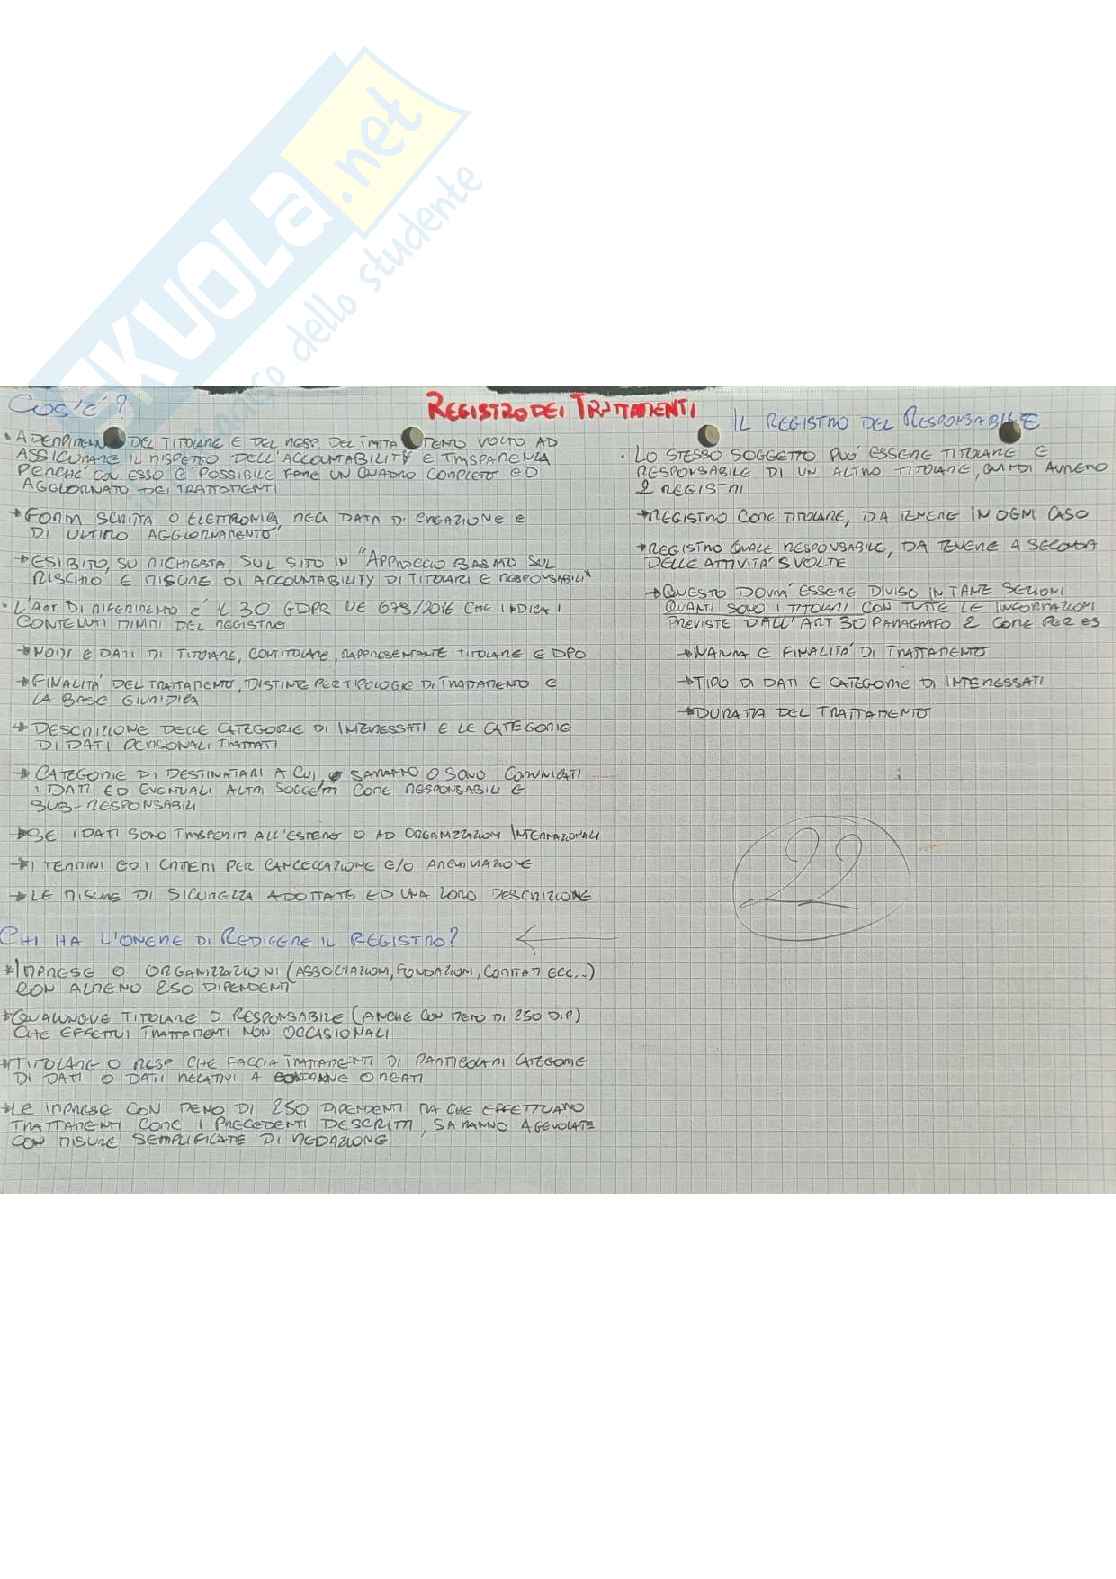 SKUOLA.net
amico dello studente
REGISTRO DEI TRATTAMENTI
COS'E'?
• ADEMPIMENTO DEL TITOLARE E DEL RESP DEL TRATTAMENTO VOLTO AD
ASSICURARE IL RISPETTO DELL'ACCOUNTABILITY E TRASPARENZA
PERCHE' CON ESSO E' POSSIBILE FARE UN QUADRO COMPLETO ED
AGGIORNATO DEI TRATTAMENTI
→ FORMA SCRITTA O ELETTRONICA, RECA DATA DI CREAZIONE E
DI ULTIMO AGGIORNAMENTO"
→ ESIBITO, SU RICHIESTA, SUL SITO IN "APPROCCIO BASATO SUL
RISCHIO E MISURE DI ACCOUNTABILITY DI TITOLARI E RESPONSABILI"
• L'ART DI RIFERIMENTO E' IL 30 GDPR UE 679/2016 CHE INDICA I
CONTENUTI MINIMI DEL REGISTRO
→ NOMI E DATI DI TITOLARE, CONTITOLARE, RAPPRESENTANTE TITOLARE E DPO
→ FINALITA' DEL TRATTAMENTO, DISTINTE PER TIPOLOGIE DI TRATTAMENTO E
LA BASE GIURIDICA
→ DESCRIZIONE DELLE CATEGORIE DI INTERESSATI E LE CATEGORIE
DI DATI PERSONALI TRATTATI
→ CATEGORIE DI DESTINATARI A CUI SARANNO O SONO COMUNICATI
I DATI ED EVENTUALI ALTRI SOGGETTI COME RESPONSABILI E
SUB-RESPONSABILI
→ SE I DATI SONO TRASFERITI ALL'ESTERO O AD ORGANIZZAZIONI INTERNAZIONALI
→ I TERMINI ED I CRITERI PER CANCELLAZIONE E/O ARCHIVIAZIONE
→ LE MISURE DI SICUREZZA ADOTTATE ED UNA LORO DESCRIZIONE
CHI HA L'ONERE DI REDIGERE IL REGISTRO?
→ IMPRESE O ORGANIZZAZIONI (ASSOCIAZIONI, FONDAZIONI, COMITATI ECC...)
CON ALMENO 250 DIPENDENTI
→ QUALUNQUE TITOLARE O RESPONSABILE (ANCHE CON MENO DI 250 DIP)
CHE EFFETTUI TRATTAMENTI NON OCCASIONALI
→ TITOLARE O RESP CHE FACCIA TRATTAMENTI DI PARTICOLARI CATEGORIE
DI DATI O DATI RELATIVI A CONDANNE O REATI
→ LE IMPRESE CON MENO DI 250 DIPENDENTI MA CHE EFFETTUANO
TRATTAMENTI COME I PRECEDENTI DESCRITTI, SARANNO AGEVOLATE
CON MISURE SEMPLIFICATE DI REDAZIONE
IL REGISTRO DEL RESPONSABILE
• LO STESSO SOGGETTO PUO' ESSERE TITOLARE E
RESPONSABILE DI UN ALTRO TITOLARE, QUINDI AVREMO
2 REGISTRI
→ REGISTRO COME TITOLARE, DA TENERE IN OGNI CASO
→ REGISTRO QUALE RESPONSABILE, DA TENERE A SECONDA
DELLE ATTIVITA' SVOLTE
→ QUESTO DOVRA' ESSERE DIVISO IN TANTE SEZIONI
QUANTI SONO I TITOLARI CON TUTTE LE INFORMAZIONI
PREVISTE DALL'ART 30 PARAGRAFO 2 COME PER ES
→ NATURA E FINALITA' DI TRATTAMENTO
→ TIPO DI DATI E CATEGORIE DI INTERESSATI
→ DURATA DEL TRATTAMENTO
22